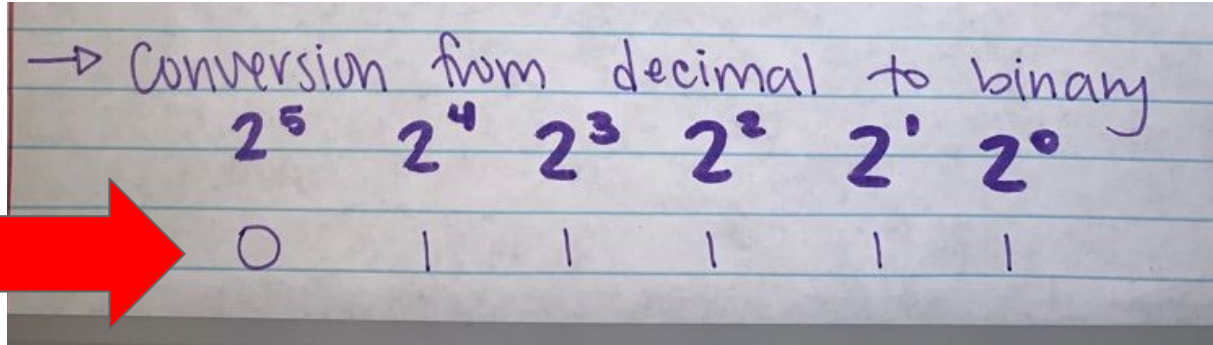 → Conversion from decimal to binary
2⁵ 2⁴ 2³ 2² 2¹ 2⁰
0 1 1 1 1 1